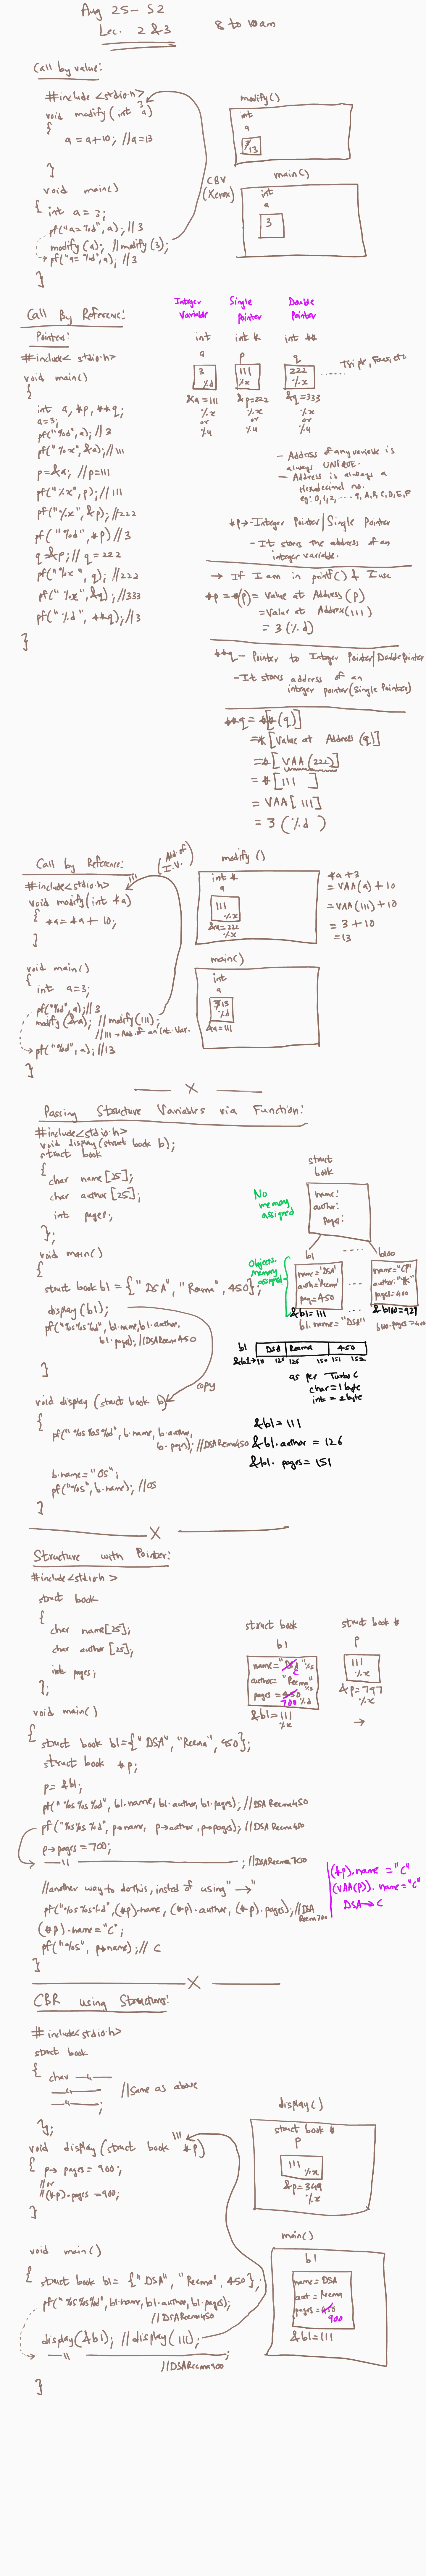 Aug 25 - S2
Lec. 2 & 3
8 to 10am
Call by value:
#include <stdio.h>
void modify(int a)
3
{
a = a+10; //a=13
}
void main()
{ int a = 3;
pf("a=%d", a); //3
modify(a); //modify(3);
pf("a=%d", a); //3
}
CBV
(Xerox)
modify()
int
a
3
13
main()
int
a
3
Call By Reference:
Pointers:
#include< stdio.h>
void main()
{
int a, *p, **q;
a=3;
pf("%d", a); //3
pf("%x", &a); //111
p=&a; //p=111
pf("%x", p); //111
pf("%x", &p); //222
pf("%d", *p) //3
q = &p; // q = 222
pf("%x", q); //222
pf("%x", &q); //333
pf("%d", **q); //3
}
Integer
Variable
int
a
3
%d
&a=111
%x
or
%u
Single
Pointer
int *
p
111
%x
&p=222
%x
or
%u
Double
Pointer
int **
q
222
%x
&q=333
%x
or
%u
Triple, Four, etc
- Address of any variable is
always UNIQUE.
- Address is always a
Hexadecimal no.
eg: 0,1,2, ---- 9, A, B, C, D, E, F
*p → Integer Pointer/Single Pointer
- It stores the address of an
integer variable.
→ If I am in printf() & I use
*p = *(p) = Value at Address (p)
= Value at Address(111)
= 3 (%d)
**q - Pointer to Integer Pointer/Double Pointer
- It stores address of an
integer pointer(Single Pointer)
**q = *[*(q)]
= *[Value at Address (q)]
= *[VAA(222)]
= *[111]
= VAA[111]
= 3 (%d)
Call by Reference:
(Add. of
I.V.)
#include<stdio.h>
111
void modify(int *a)
{ *a = *a + 10;
}
void main()
{
int a=3;
pf("%d", a); //3
modify(&a); //modify(111);
//111 → Add. of an Int. Var.
pf("%d", a); //13
}
modify()
int *
a
111
%x
&a=222
%x
*a + 3
= VAA(a) + 10
= VAA(111) + 10
= 3 + 10
= 13
main()
int
a
3 13
%d
&a=111
X
Passing Structure Variables via Function:
#include<stdio.h>
void display(struct book b);
struct book
{
char name[25];
char author[25];
int pages;
};
void main()
{
struct book b1 = {"DSA", "Reema", 450};
display(b1);
pf("%s%s%d", b1.name, b1.author,
b1.pages); //DSAReema450
}
copy
void display (struct book b)
{
pf("%s%s%d", b.name, b.author,
b.pages); //DSAReema450
b.name="OS";
pf("%s", b.name); //OS
}
No
memory
assigned
struct
book
name:
author:
pages:
Objects
memory
assigned
b1
name="DSA"
auth="Reema"
pag=450
&b1=111
b1.name="DSA"
b100
name="CP"
author="YK"
pages=400
&b100=927
b100.pages=400
b1
DSA Reema 450
&b1→111 125 126 150 151 152
as per Turbo C
char=1 byte
int = 2 byte
&b1=111
&b1.author = 126
&b1.pages= 151
X
Structure with Pointer:
#include<stdio.h>
struct book
{
char name[25];
char author [25];
int pages;
};
void main()
{ struct book b1={"DSA", "Reema", 450};
struct book *p;
p= &b1;
pf("%s%s%d", b1.name, b1.author, b1.pages); //DSAReema450
pf("%s%s%d", p→name, p→author, p→pages); //DSAReema450
p→pages=700;
—"— ; //DSAReema700
//another way to do this, insted of using "→"
pf("%s%s%d", (*p).name, (*p).author, (*p).pages); //DSA
Reema700
(*p).name="C";
pf("%s", p→name); // C
}
struct book
b1
name="DSA" %s
C
author="Reema"
%s
pages=450
700 %d
&b1=111
%x
struct book *
p
111
%x
&p=797
%x
→
(*p).name = "C"
(VAA(p)).name="C"
DSA→C
X
CBR using Structures:
#include<stdio.h>
struct book
{ char —"—
—"—
—"— ;
//Same as above
};
111
void display(struct book *p)
{ p→pages = 900;
//or
//(*p).pages = 900;
}
void main()
{ struct book b1= {"DSA", "Reema", 450};
pf("%s%s%d", b1.name, b1.author, b1.pages);
//DSAReema450
display(&b1); //display(111);
—"— ;
//DSAReema900
}
display()
struct book *
p
111
%x
&p=349
%x
main()
b1
name=DSA
aut=Reema
pages=450
900
&b1=111